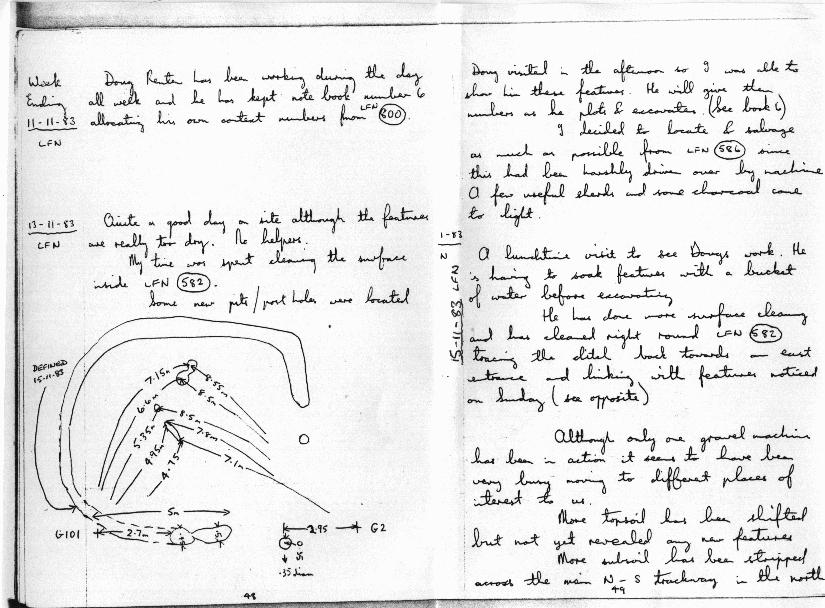 Week Doug Renten has been working during the day
Ending all week and he has kept note book number 6
11-11-83 allocating his own context numbers from LFN 800.
LFN
13-11-83 Quite a good day on site although the features
LFN are really too dry. No helpers.
My time was spent cleaning the surface
inside LFN 582.
Some new pits/post holes were located
DEFINED
15.11.83
7.15m
8.55m
8.5m
6.6m
8.5m
5.35m
7.8m
4.95m
4.75
7.1m
5m
G101
2.7m
.5
.5
2.95
G2
.5
.35 diam
48
Doug visited in the afternoon so I was able to
show him these features. He will give them
numbers as he plots & excavates. (See book 6)
I decided to locate & salvage
as much as possible from LFN 586 since
this had been harshly driven over by machine
A few useful sherds and some charcoal came
to light.
1-83
N
15-11-83 LFN
A lunchtime visit to see Dougs work. He
is having to soak features with a bucket
of water before excavating
He has done more surface cleaning
and has cleaned right round LFN 582
tracing the ditch back towards an east
entrance and linking with features noticed
on Sunday (see opposite)
Although only one gravel machine
has been in action it seems to have been
very busy moving to different places of
interest to us.
More topsoil has been shifted
but not yet revealed any new features
More subsoil has been stripped
across the main N-S trackway in the north
49